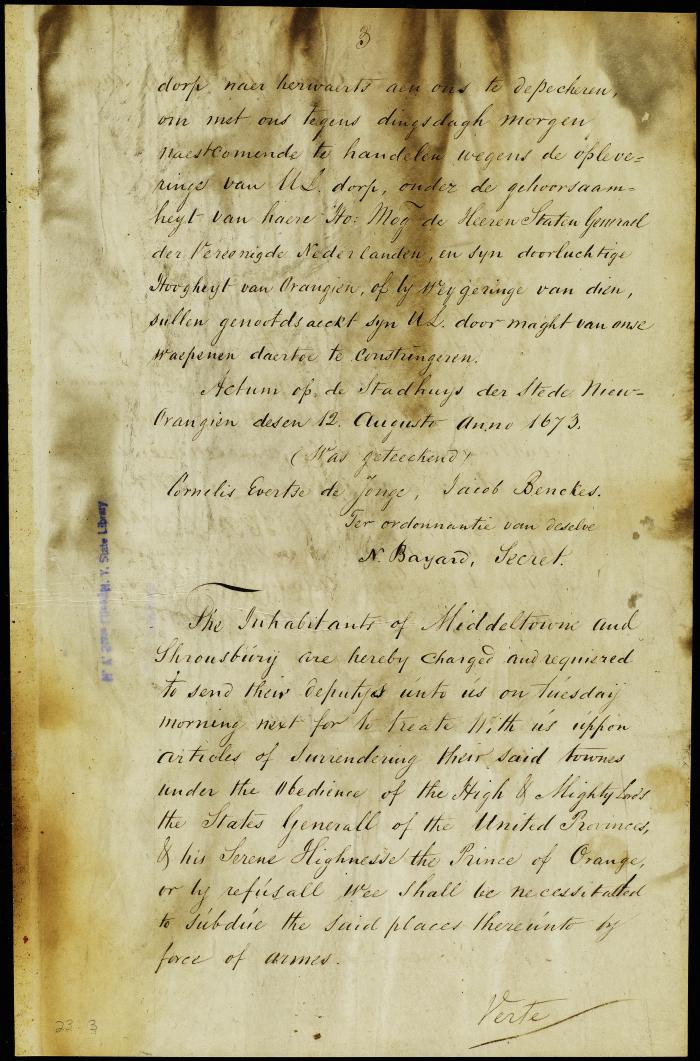 3
dorp, naer herwaerts aen ons te depecheren,
om met ons tegens dingsdagh morgen
naestcomende te handelen wegens de opleve=
ringe van U.L. dorp, onder de gehoorsaam=
heyt van haere Ho: Mog de Heeren Staten Generael
der Vereenigde Nederlanden, en syn doorluchtige
Hoogheyt van Orangien, of by weygeringe van dien,
sullen genootdsaeckt syn U.L. door maght van onse
waepenen daertoe te constringeren.
Actum op de Stadhuys der Stede Nieuw-
Orangien desen 12. Augusto Anno 1673.
(Was geteeckend)
Cornelis Evertse de Jonge, Jacob Benckes.
Ter ordonnantie van deselve
N. Bayard, Secret.
The Inhabitants of Middeltowne and
Shrousbury are hereby charged and requiered
to send their deputyes unto us on tuesday
morning next for to treate With us uppon
articles of Surrendering their said townes
under the Obedience of the High & Mighty Lords
the States Generall of the United Provinces,
& his Serene Highnesse the Prince of Orange,
or by refusall Wee Shall be necessitatted
to subdue the said places thereunto by
force of armes.
Verte
N. Y. State Library
23:3